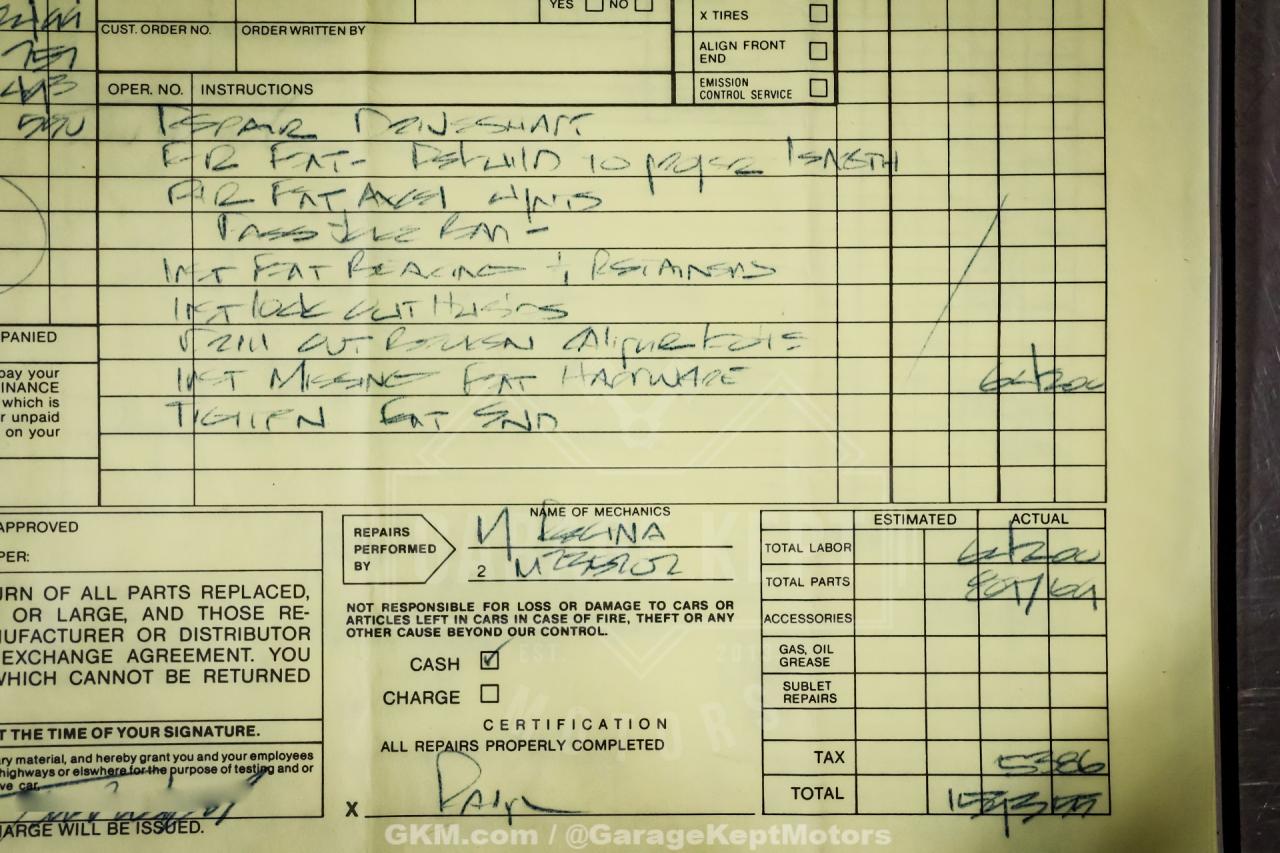 YES NO
X TIRES
CUST. ORDER NO. ORDER WRITTEN BY
ALIGN FRONT
END
OPER. NO. INSTRUCTIONS
EMISSION
CONTROL SERVICE
REPAIR DRIVESHAFT
FRT REBUILD TO proper LENGTH
FRT AXEL
INST FRT BEARING & RETAINERS
INST lock OUT
DRILL OUT BROKEN
INST MISSING FRT HARDWARE
TIGHTEN FRT END
PANIED
pay your
INANCE
which is
r unpaid
on your
APPROVED
PER:
URN OF ALL PARTS REPLACED,
OR LARGE, AND THOSE RE-
NUFACTURER OR DISTRIBUTOR
EXCHANGE AGREEMENT. YOU
WHICH CANNOT BE RETURNED
T THE TIME OF YOUR SIGNATURE.
ry material, and hereby grant you and your employees
highways or elswhere for the purpose of testing and or
ve car.
HARGE WILL BE ISSUED.
REPAIRS
PERFORMED
BY
NAME OF MECHANICS
2
NOT RESPONSIBLE FOR LOSS OR DAMAGE TO CARS OR
ARTICLES LEFT IN CARS IN CASE OF FIRE, THEFT OR ANY
OTHER CAUSE BEYOND OUR CONTROL.
CASH
CHARGE
CERTIFICATION
ALL REPAIRS PROPERLY COMPLETED
X
ESTIMATED ACTUAL
TOTAL LABOR
TOTAL PARTS
ACCESSORIES
GAS, OIL
GREASE
SUBLET
REPAIRS
TAX 5386
TOTAL
GARAGE KEPT
EST. 2013
MOTORS
GKM.com / @GarageKeptMotors